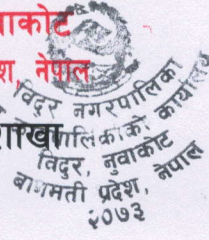 ाकोट
श, नेपाल
शाखा
विदुर नगरपालिका
पालिकाको कार्यालय
विदुर, नुवाकोट
बागमती प्रदेश, नेपाल
२०७३